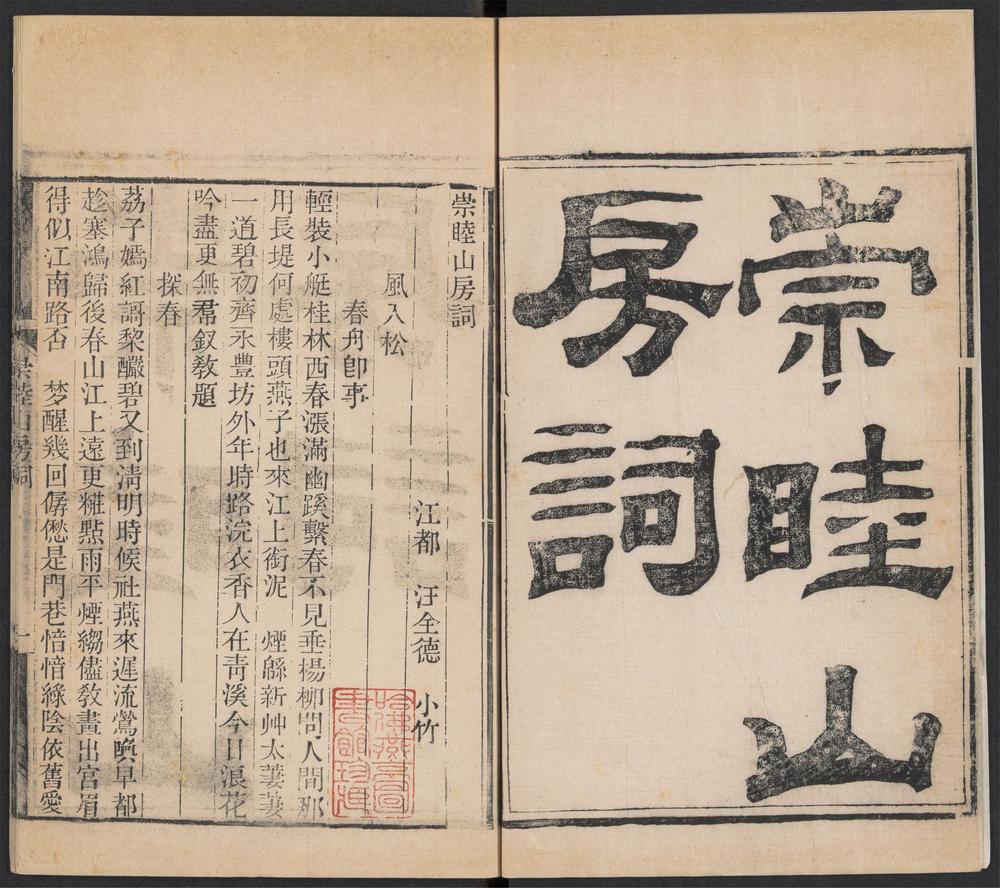 崇睦山
房詞
崇睦山房詞
江都　汪全德　小竹
風入松
春舟卽事
輕裝小艇桂林西春漲滿幽蹊繫春不見垂楊柳問人間那
用長堤何處樓頭燕子也來江上銜泥　煙緜新艸太萋萋
一道碧初齊永豐坊外年時路浣衣香人在靑溪今日浪花
吟盡更無羣釵敎題
探春
荔子嫣紅謌黎釅碧又到淸明時候社燕來遲流鶯喚早都
趁塞鴻歸後春山江上遠更糚點雨平煙縐儘敎畫出宮眉
得似江南路否　梦醒幾回僝僽是門巷愔愔綠陰依舊愛
崇睦山房詞
一
哈佛燕京圖
書館珍藏